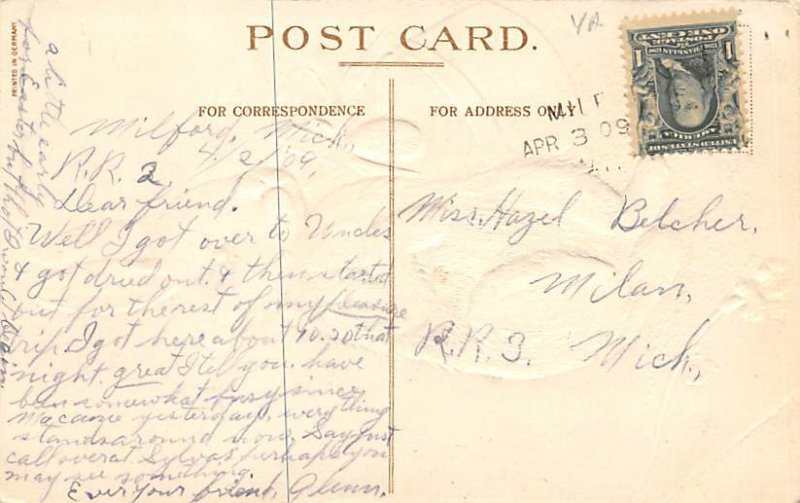 PRINTED IN GERMANY
POST CARD.
FOR CORRESPONDENCE
FOR ADDRESS ONLY
MIL
APR 3 09
ONE CENT
POSTAGE
1 1
UNITED STATES OF
AMERICA
Milford, Mich.,
4, 2, '09,
R.R. 2
Dear friend.
Well I got over to Uncles
& got dried out. & then started
out for the rest of my pleasure
trip. I got here about 10.30 that
night. great I tell you. have
ben somewhat busy since
Ma came yesterday, everything
stands around now. Say just
call over at Sylvas perhaps you
may see something.
Ever your friend, Glenn.
a little early
for Easter but tho't I would
Miss. Hazel Belcher.
Milan,
R.R. 3. Mich.,